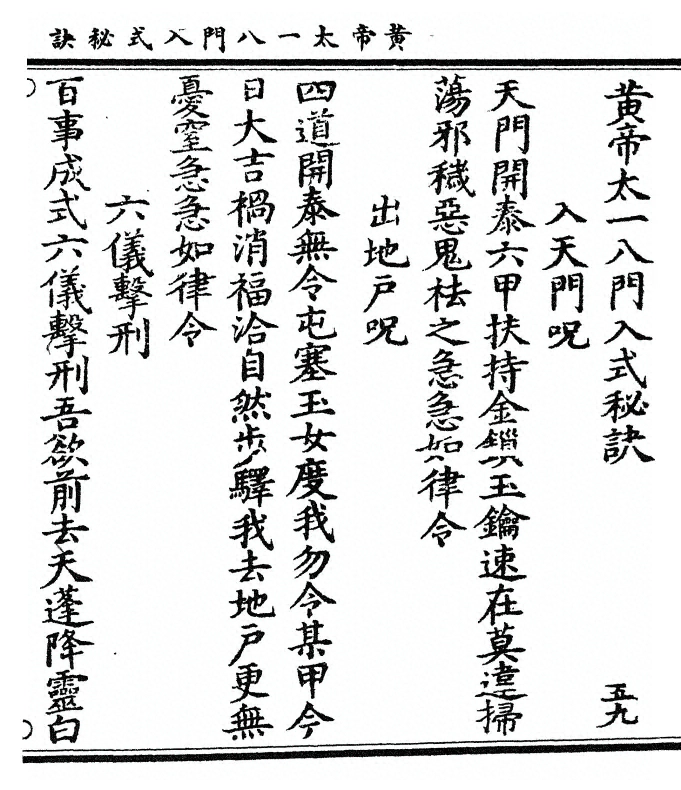 黃帝太一八門入式秘訣
黃帝太一八門入式秘訣 五九
入天門呪
天門開泰六甲扶持金鎖玉鑰速在莫違掃
蕩邪穢惡鬼祛之急急如律令
出地戶呪
四道開泰無令屯塞玉女度我勿令某甲今
日大吉禍消福洽自然步驛我去地戶更無
憂窒急急如律令
六儀擊刑
百事成式六儀擊刑吾欲前去天蓬降靈白